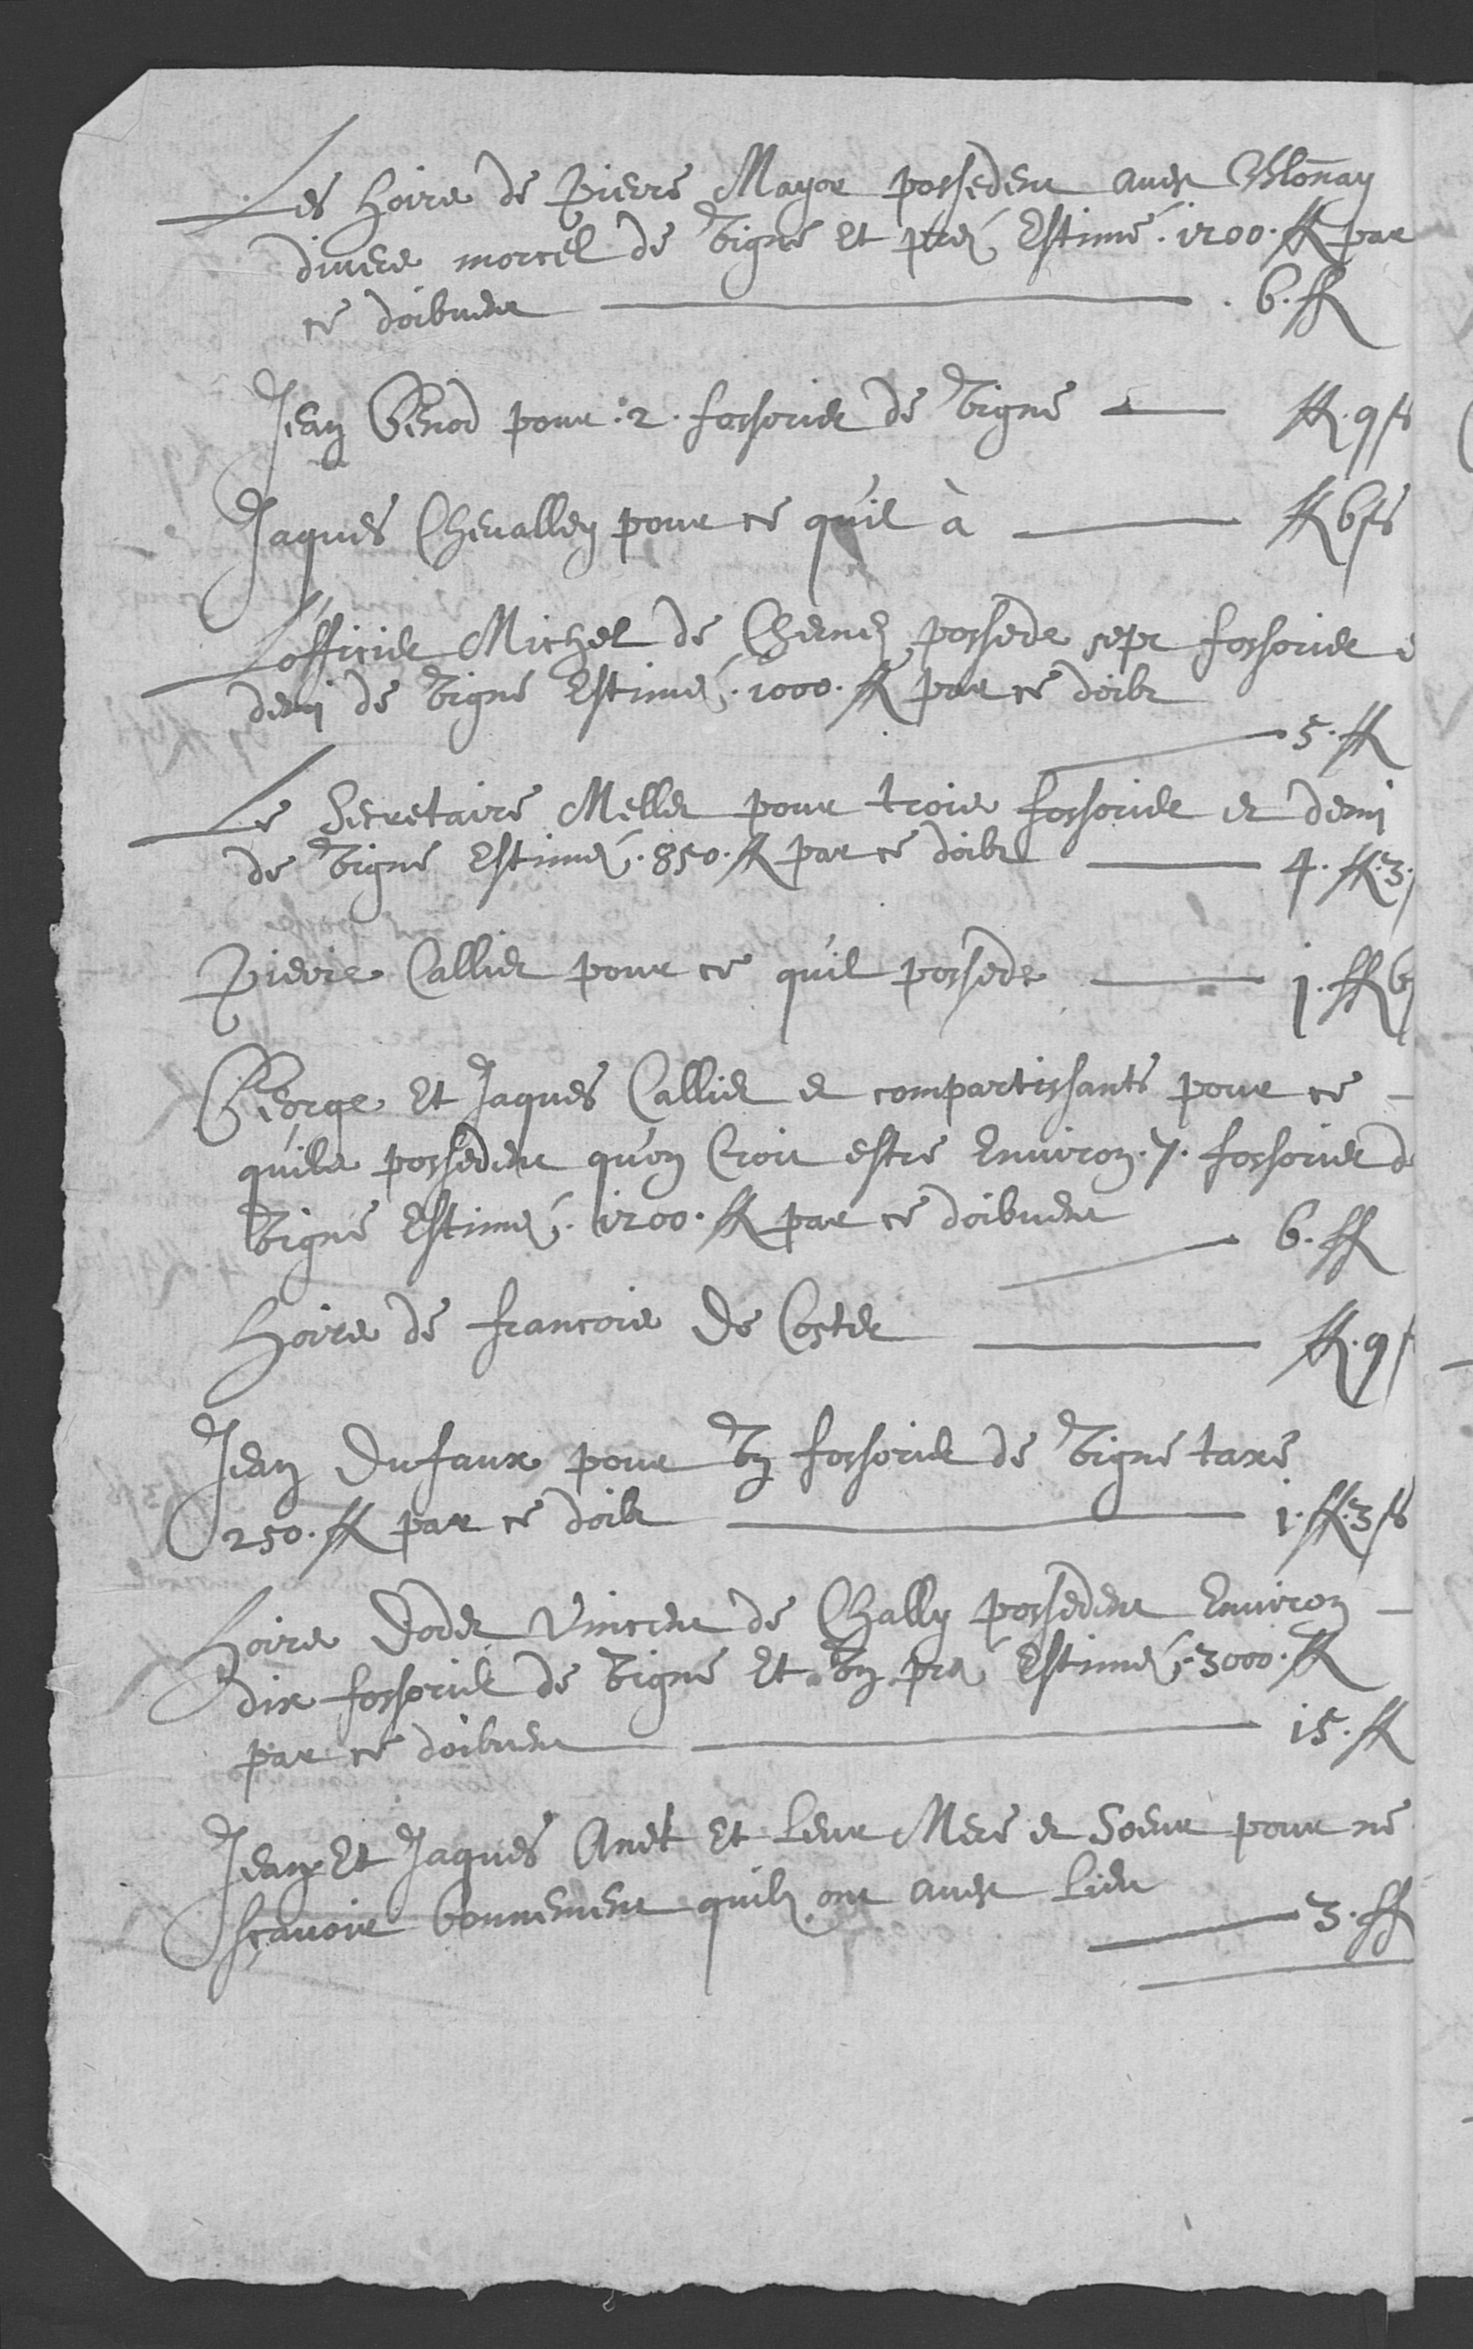 Les hoirs de Pierre Mayor possedent audit Blonay
divers morcel de vigne et prez Estimé. 1200. ff par
ce doibvent . 6. ff
Jean Genod pour. 2. fossorier de vigne ff. 9 ss
Jaques Chevalley pour ce qu'il à ff 6 ss
L'officier Michel de Chernex possede sept fossorier e
demi de vigne Estimez. 1000. ff par ce doibt
5. ff
Le Secretaire Mellet pour trois fossorier et demi
de vigne Estimez. 850. ff par ce doibt 4. ff. 3.
Pierre Callier pour ce qu'il possede 1. ff 6
George et Jaques Callier et compartissants pour ce
quils possedent qu'on Croit estre Environ. 7. fossorier d
vigne Estimez. 1200. ff par ce doibvent 6. ff
Hoirs de francois De Coster ff. 9 s
Jean Dufaux pour un fossorier de vigne taxé
250. ff par ce doibt 1. ff. 3 ss
Hoirs dodet Vincent de Chally possedent Environ
dix fossorier de vigne et un pré Estimez. 3000. ff
par ce doibvent 15. ff
Jean et Jaques Anet et leur Mere et Soeur pour ne
sçavoir bonnement quilz ont audit Lieu
3. ff